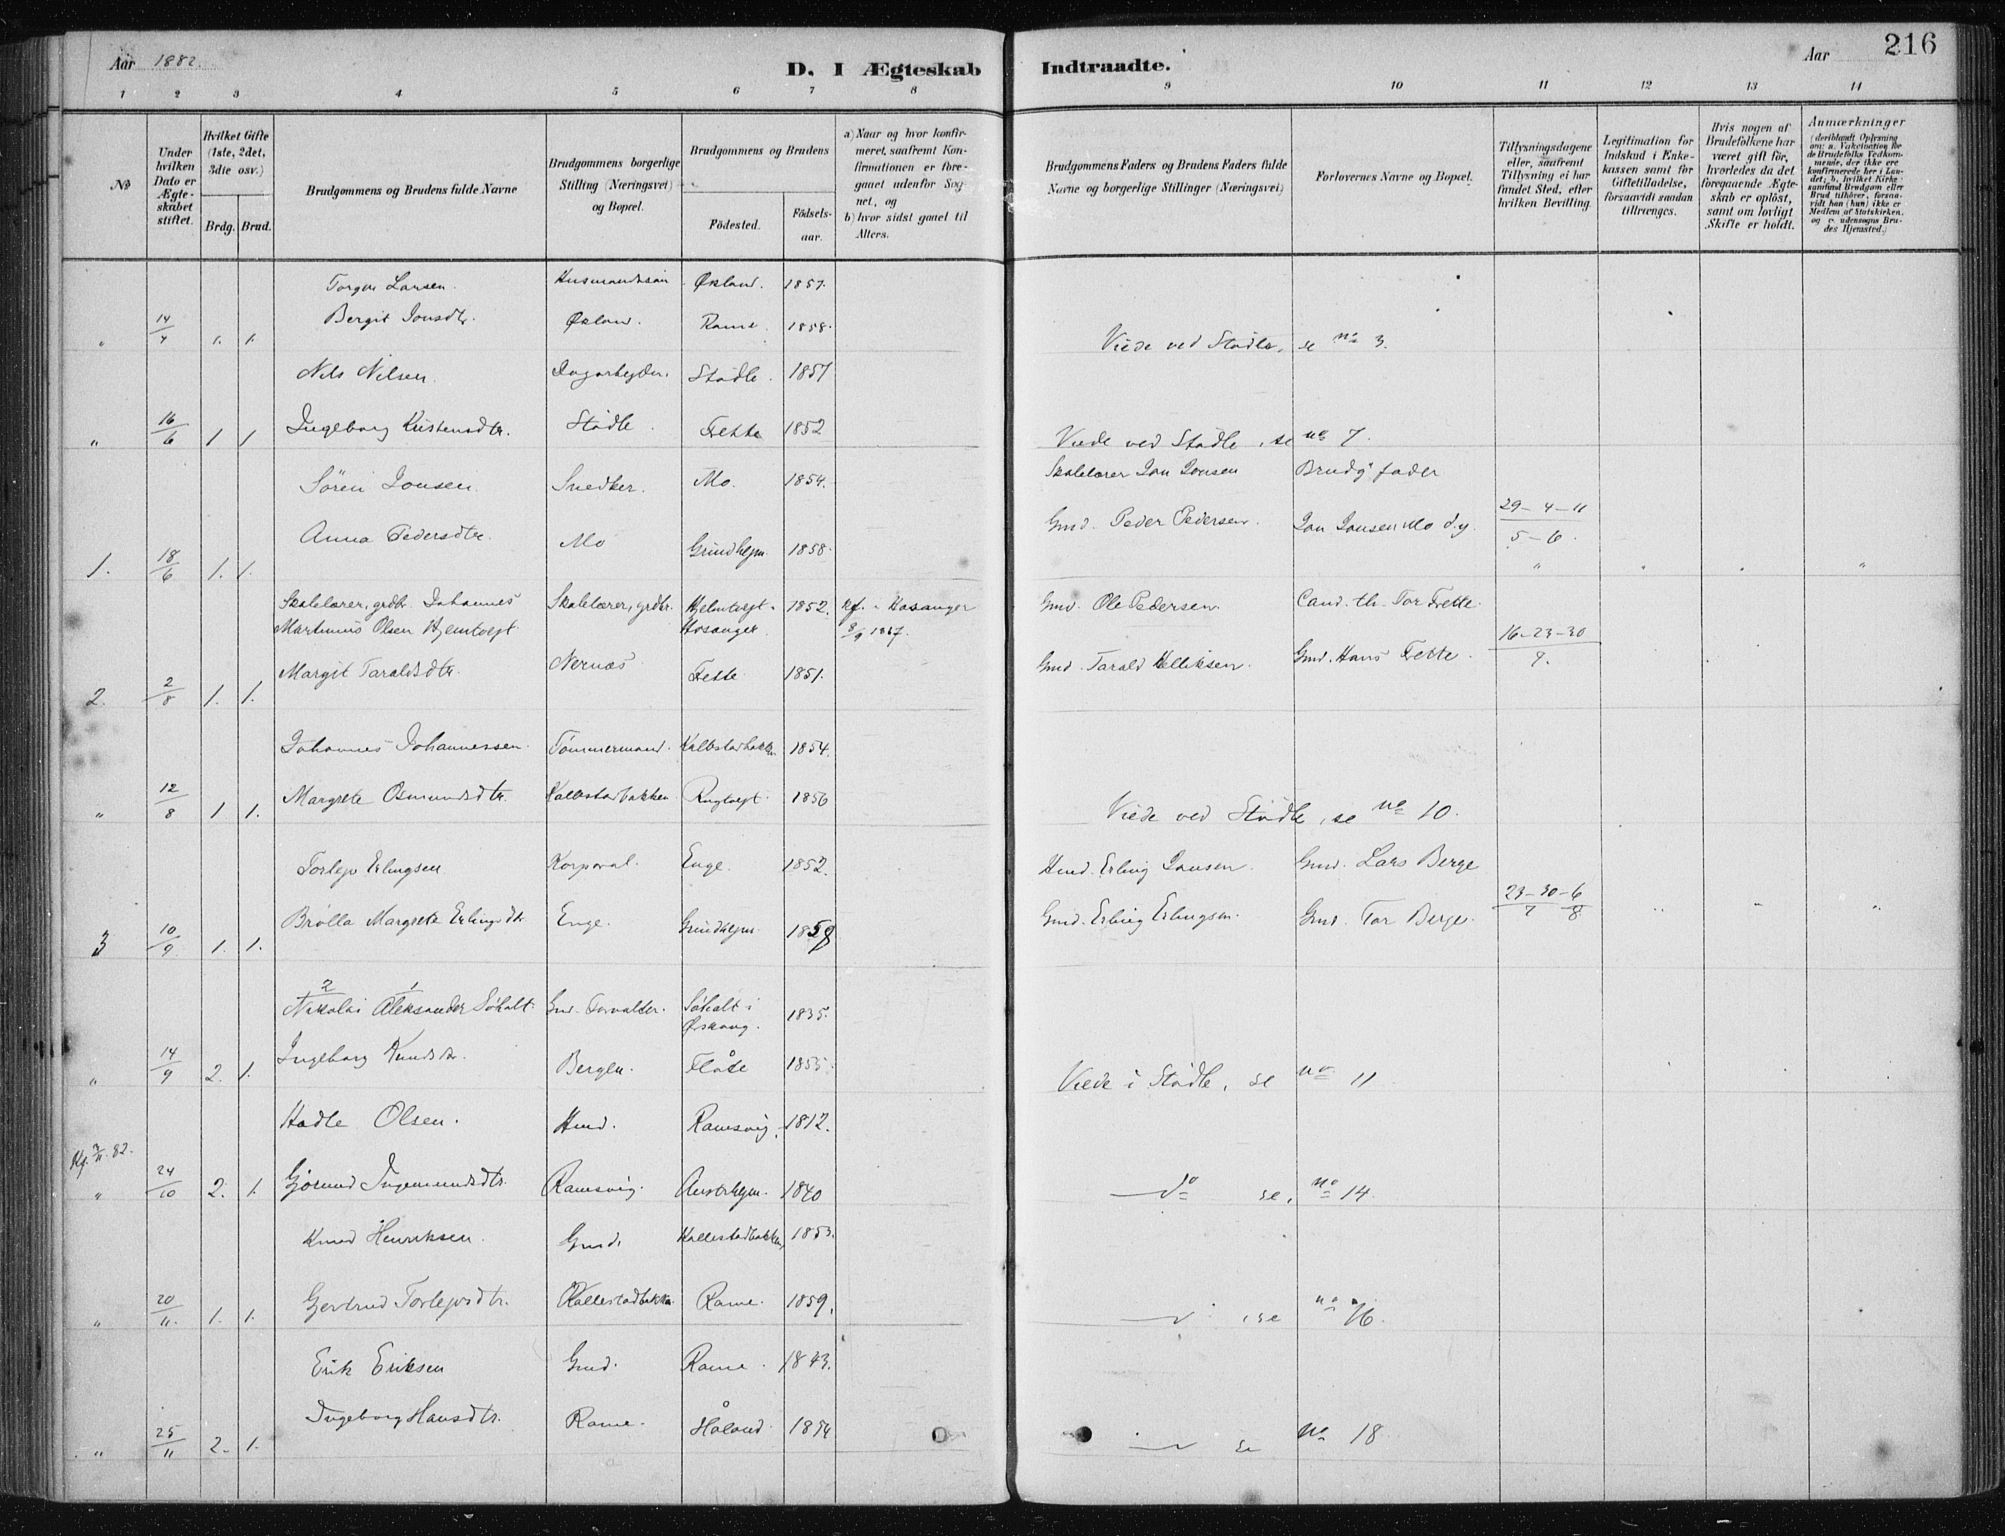 Aar 1882.
D. I Ægteskab Indtraadte.
Aar
216
1 2 3 4 5 6 7 8 9 10 11 12 13 14
No
Under hvilken Dato er Ægteskabet stiftet.
Hvilket Gifte (1ste, 2det, 3die osv.)
Brdg. Brud.
Brudgommens og Brudens fulde Navne
Brudgommens borgerlige Stilling (Næringsvei) og Bopæl.
Brudgommens og Brudens
Födested. Födsels-aar.
a) Naar og hvor konfirmeret, saafremt Konfirmationen er foregaaet udenfor Sognet, og
b) hvor sidst gaaet til Alters.
Brudgommens Faders og Brudens Faders fulde Navne og borgerlige Stillinger (Næringsvei)
Forlovernes Navne og Bopæl.
Tillysningsdagene eller, saafremt Tillysning ei har fundet Sted, efter hvilken Bevilling.
Legitimation for Indskud i Enkekassen samt for Giftetilladelse, forsaavidt saadan tiltrænges.
Hvis nogen af Brudefolkene har været gift för, hvorledes da det foregaaende Ægteskab er oplöst, samt om lovligt Skifte er holdt.
Anmærkninger
Torger Larsen. Husmandssön Økland. 1857.
" 14/4 1. 1. Bergit Jonsdtr. Økland. Rame. 1858. Viede ved Stödle, se no 3.
Nils Nilsen. Dagarbejder. Stödle. 1857
" 16/6 1 1 Ingeborg Kristensdtr. Stödle. Frette 1852 Viede ved Stödle, se no 7.
Sören Jonsen. Snedker. Mo. 1854. Skolelærer Jon Jonsen Brudg. fader
1. 18/6 1. 1. Anna Pedersdtr. Mo Grindhejm. 1858. Gmd. Peder Pedersen. Jon Jonsen Mo d.y. 29-4-11/5-6. " " " "
Skolelærer, grdbr. Johannes Martinus Olsen Hjelmtvejt Skolelærer, grdbr. Hjelmtvejt, Hosanger. 1852. Kf. i Hosanger 8/9 1867. Gmd. Ole Pedersen. Cand. th. Tor Frette.
2. 2/8 1. 1. Margit Taraldsdtr. Nernæs Frette 1851. Gmd. Tarald Helliksen. Gmd. Hans Frette. 16-23-30/7.
Johannes Johannessen. Tömmermand. Kallestadbakken 1854.
" 12/8 1 1. Margrete Osmundsdtr. Kallestadbakken 1856 Viede ved Stödle, se no 10.
Torlejv Erlingsen Korporal. Enge. 1852. Hmd. Erling Gmd. Lars Berge
3 10/9 1. 1. Margrete Erlingsdtr. Enge. Grindhejm 1859 Gmd. Erling Erlingsen. Gmd. Tor Berge. 23-30-6/7 8 " " "
2 1
Nikolai Aleksander Söholt. Gmd. Forvalter. Söholt i Ørskoug. 1835.
" 14/9 2. 1. Ingeborg Knudsdtr. Bergen. Flåte 1855. Viede i Stödle, se no 11
Hadle Olsen. Hmd. Ramsvig. 1812.
Kf. 3/11. 82.
" 24/10 2. 1. Gjörund Ingemundsdtr. Ramsvig. Austrhejm. 1840 do se, no 14.
Knud Henriksen. Gmd. Kallestadbakken 1853.
" 20/11. 1. 1. Gertrud Torlejvsdtr. Kallestadbakken Rame. 1859. , se no 16.
Erik Eriksen Gmd. Rame. 1843.
" 25/11 2. 1. Ingeborg Hansdtr. Rame. Håland. 1854 se no 18